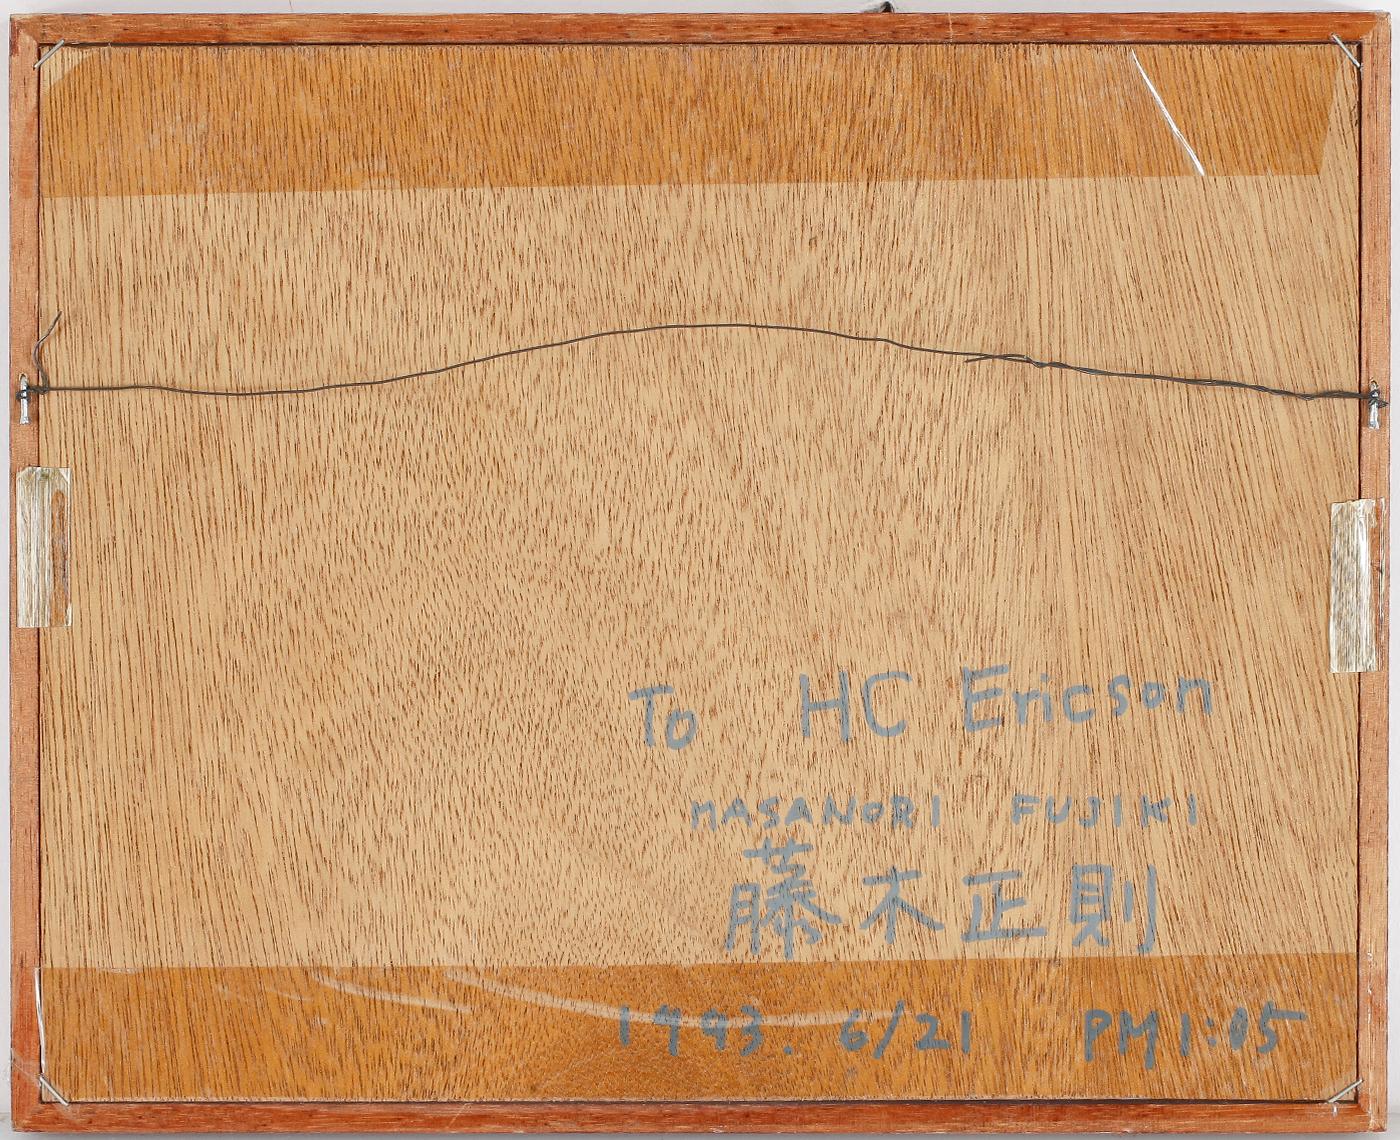 To HC Ericson
MASANORI FUJIKI
藤木正則
1993. 6/21 PM1:05